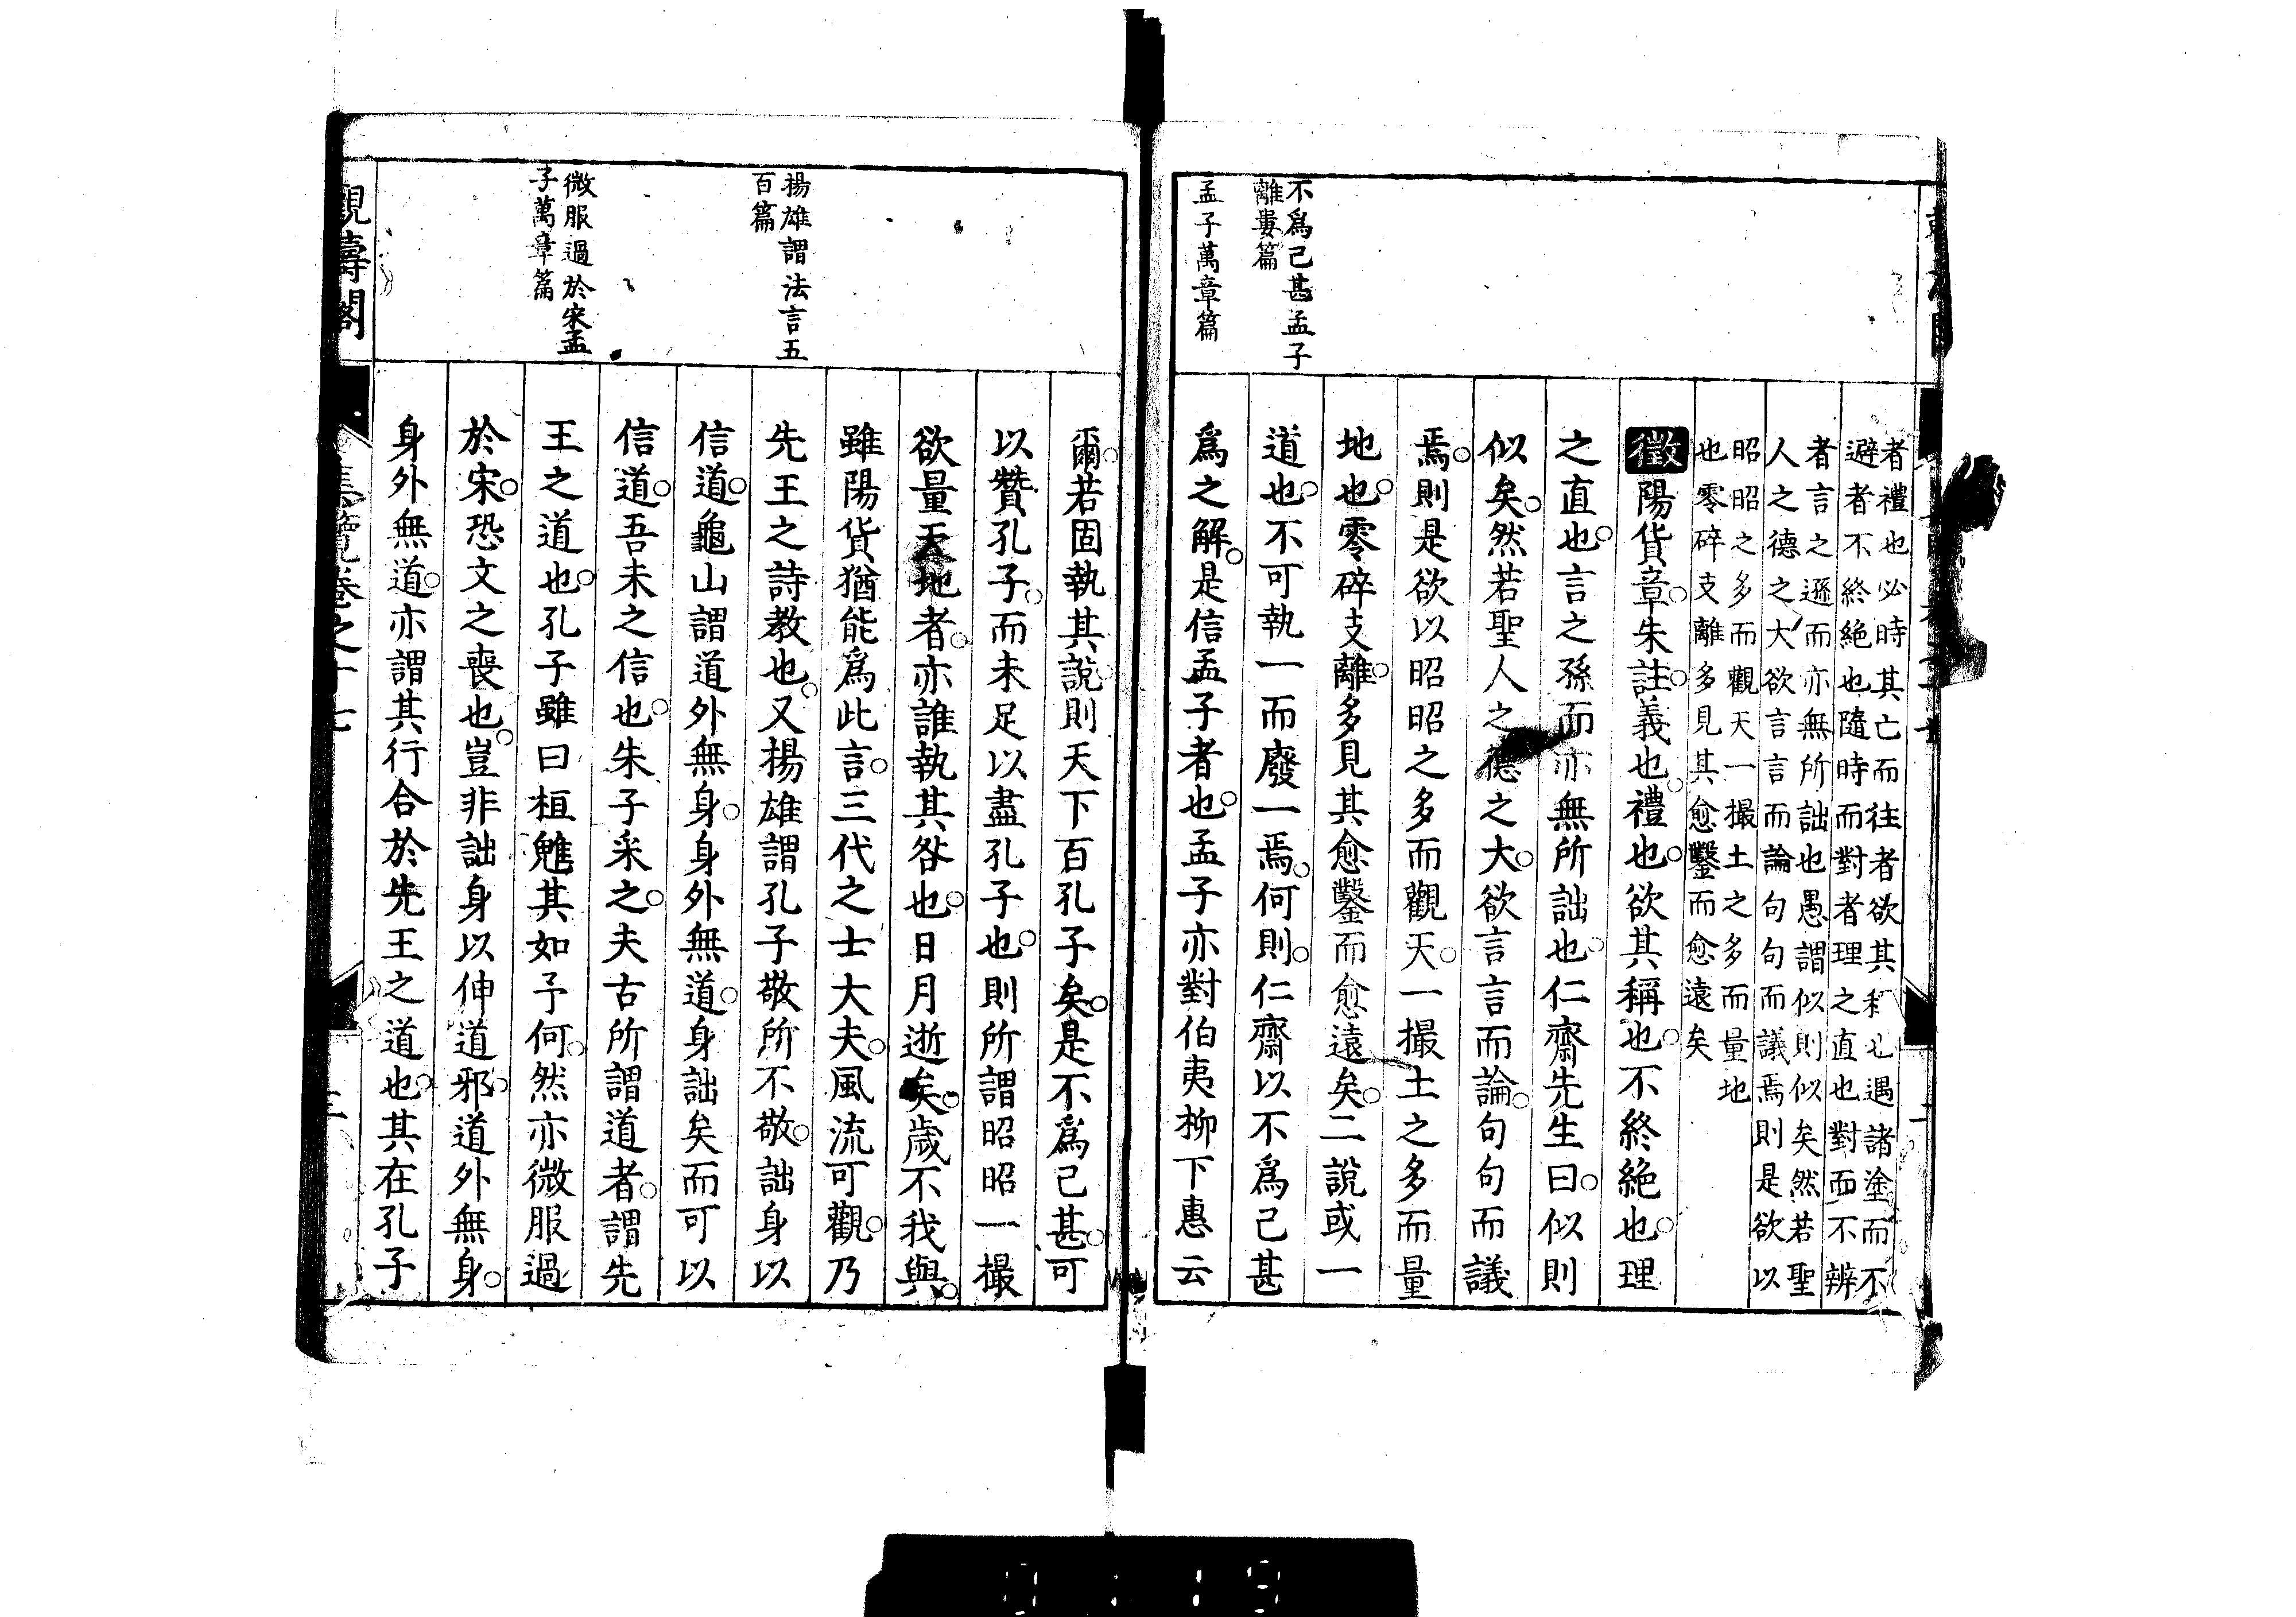 不爲已甚孟子
離婁篇
孟子萬章篇
者禮也必時其亡而往者欲其稱也遇諸塗而不
避者不終絶也隨時而對者理之直也對而不辨
者言之遜而亦無所詘也愚謂似則似矣然若聖
人之德之大欲言言而論句句而議焉則是欲以
昭昭之多而觀天一撮土之多而量地
也零碎支離多見其愈鑿而愈遠矣
徵陽貨章朱註義也禮也欲其稱也不終絶也理
之直也言之孫而亦無所詘也仁齋先生曰似則
似矣然若聖人之德之大欲言言而論句句而議
焉則是欲以昭昭之多而觀天一撮土之多而量
地也零碎支離多見其愈鑿而愈遠矣二說或一
道也不可執一而廢一焉何則仁齋以不爲已甚
爲之解是信孟子者也孟子亦對伯夷柳下惠云
揚雄謂法言五
百篇
微服過於宋孟
子萬章篇
爾若固執其說則天下百孔子矣是不爲已甚可
以贊孔子而未足以盡孔子也則所謂昭昭一撮
欲量天地者亦誰執其咎也日月逝矣歲不我與
雖陽貨猶能爲此言三代之士大夫風流可觀乃
先王之詩教也又揚雄謂孔子敬所不敬詘身以
信道龜山謂道外無身身外無道身詘矣而可以
信道吾未之信也朱子采之夫古所謂道者謂先
王之道也孔子雖曰桓魋其如予何然亦微服過
於宋恐文之喪也豈非詘身以伸道邪道外無身
身外無道亦謂其行合於先王之道也其在孔子
觀濤閣
集覽卷之十七
三